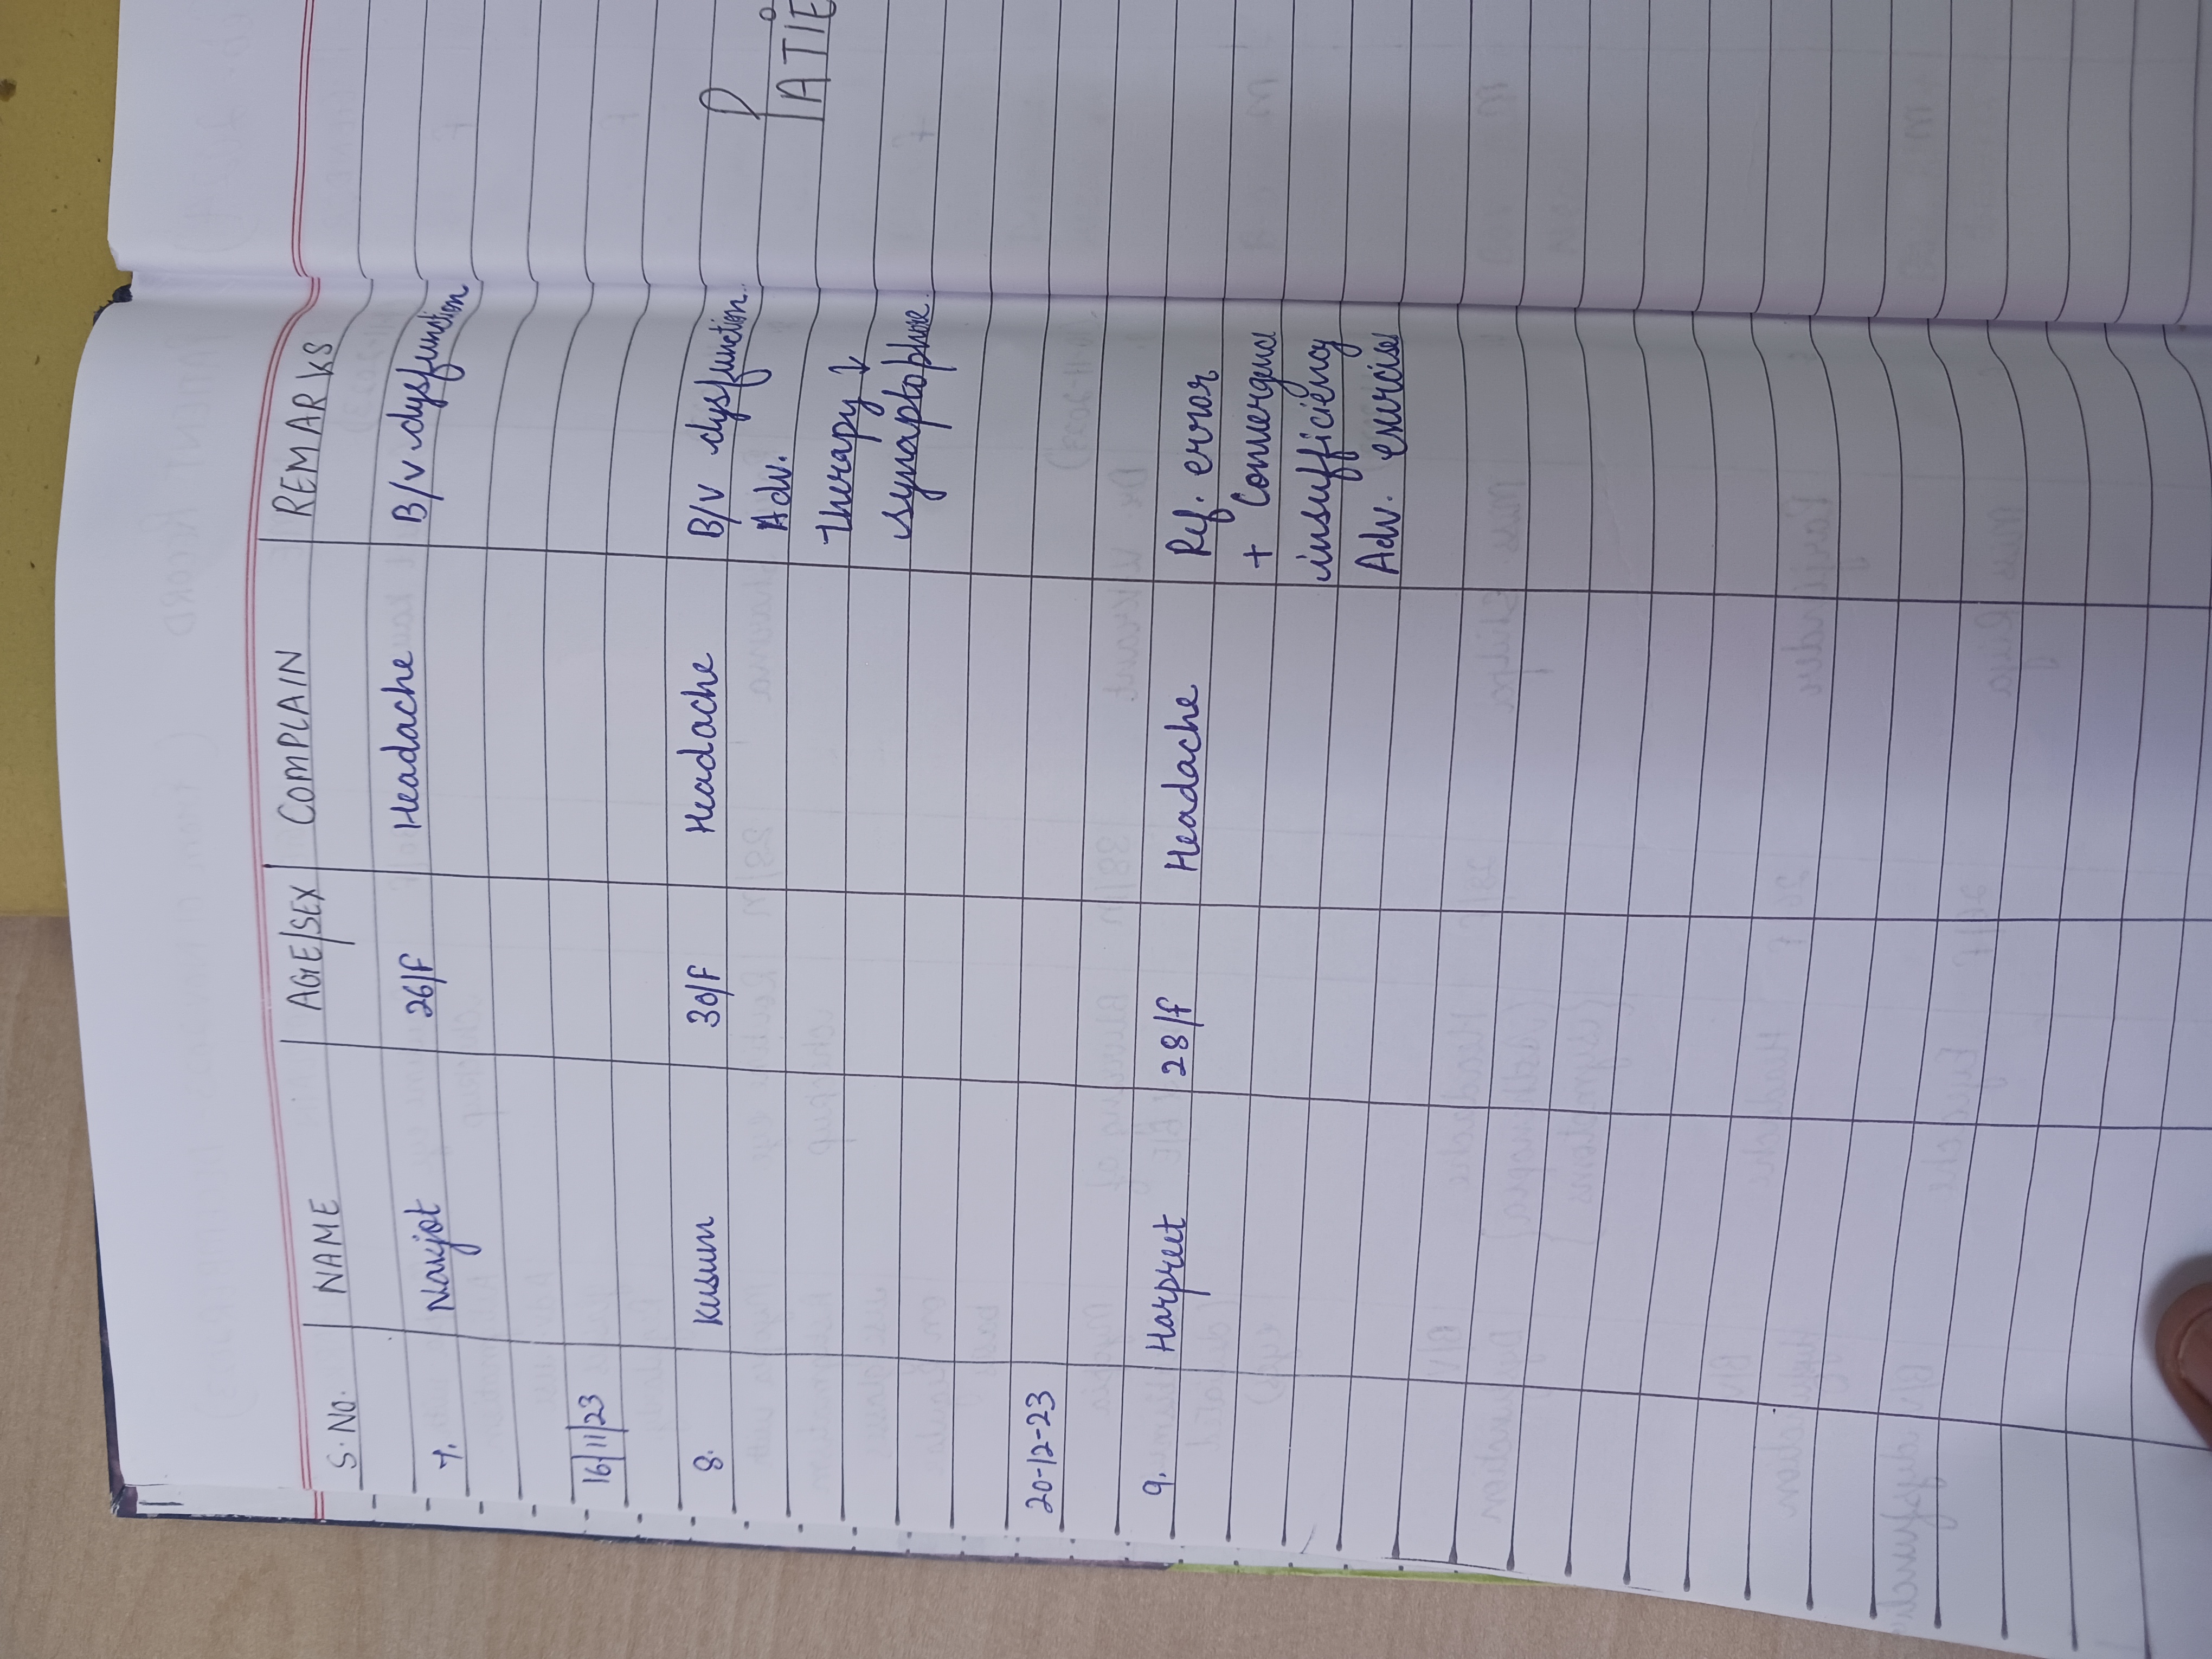 S. No. NAME AGE/SEX COMPLAIN REMARKS
7. Navjot 26/F Headache B/V dysfunction
16/11/23
8. Kusum 30/F Headache B/V dysfunction
Adv.
therapy ↓
synaptophore.
20-12-23
9. Harpreet 28/f Headache Ref. error
+ Convergence
insufficiency
Adv. exercises
PATIE